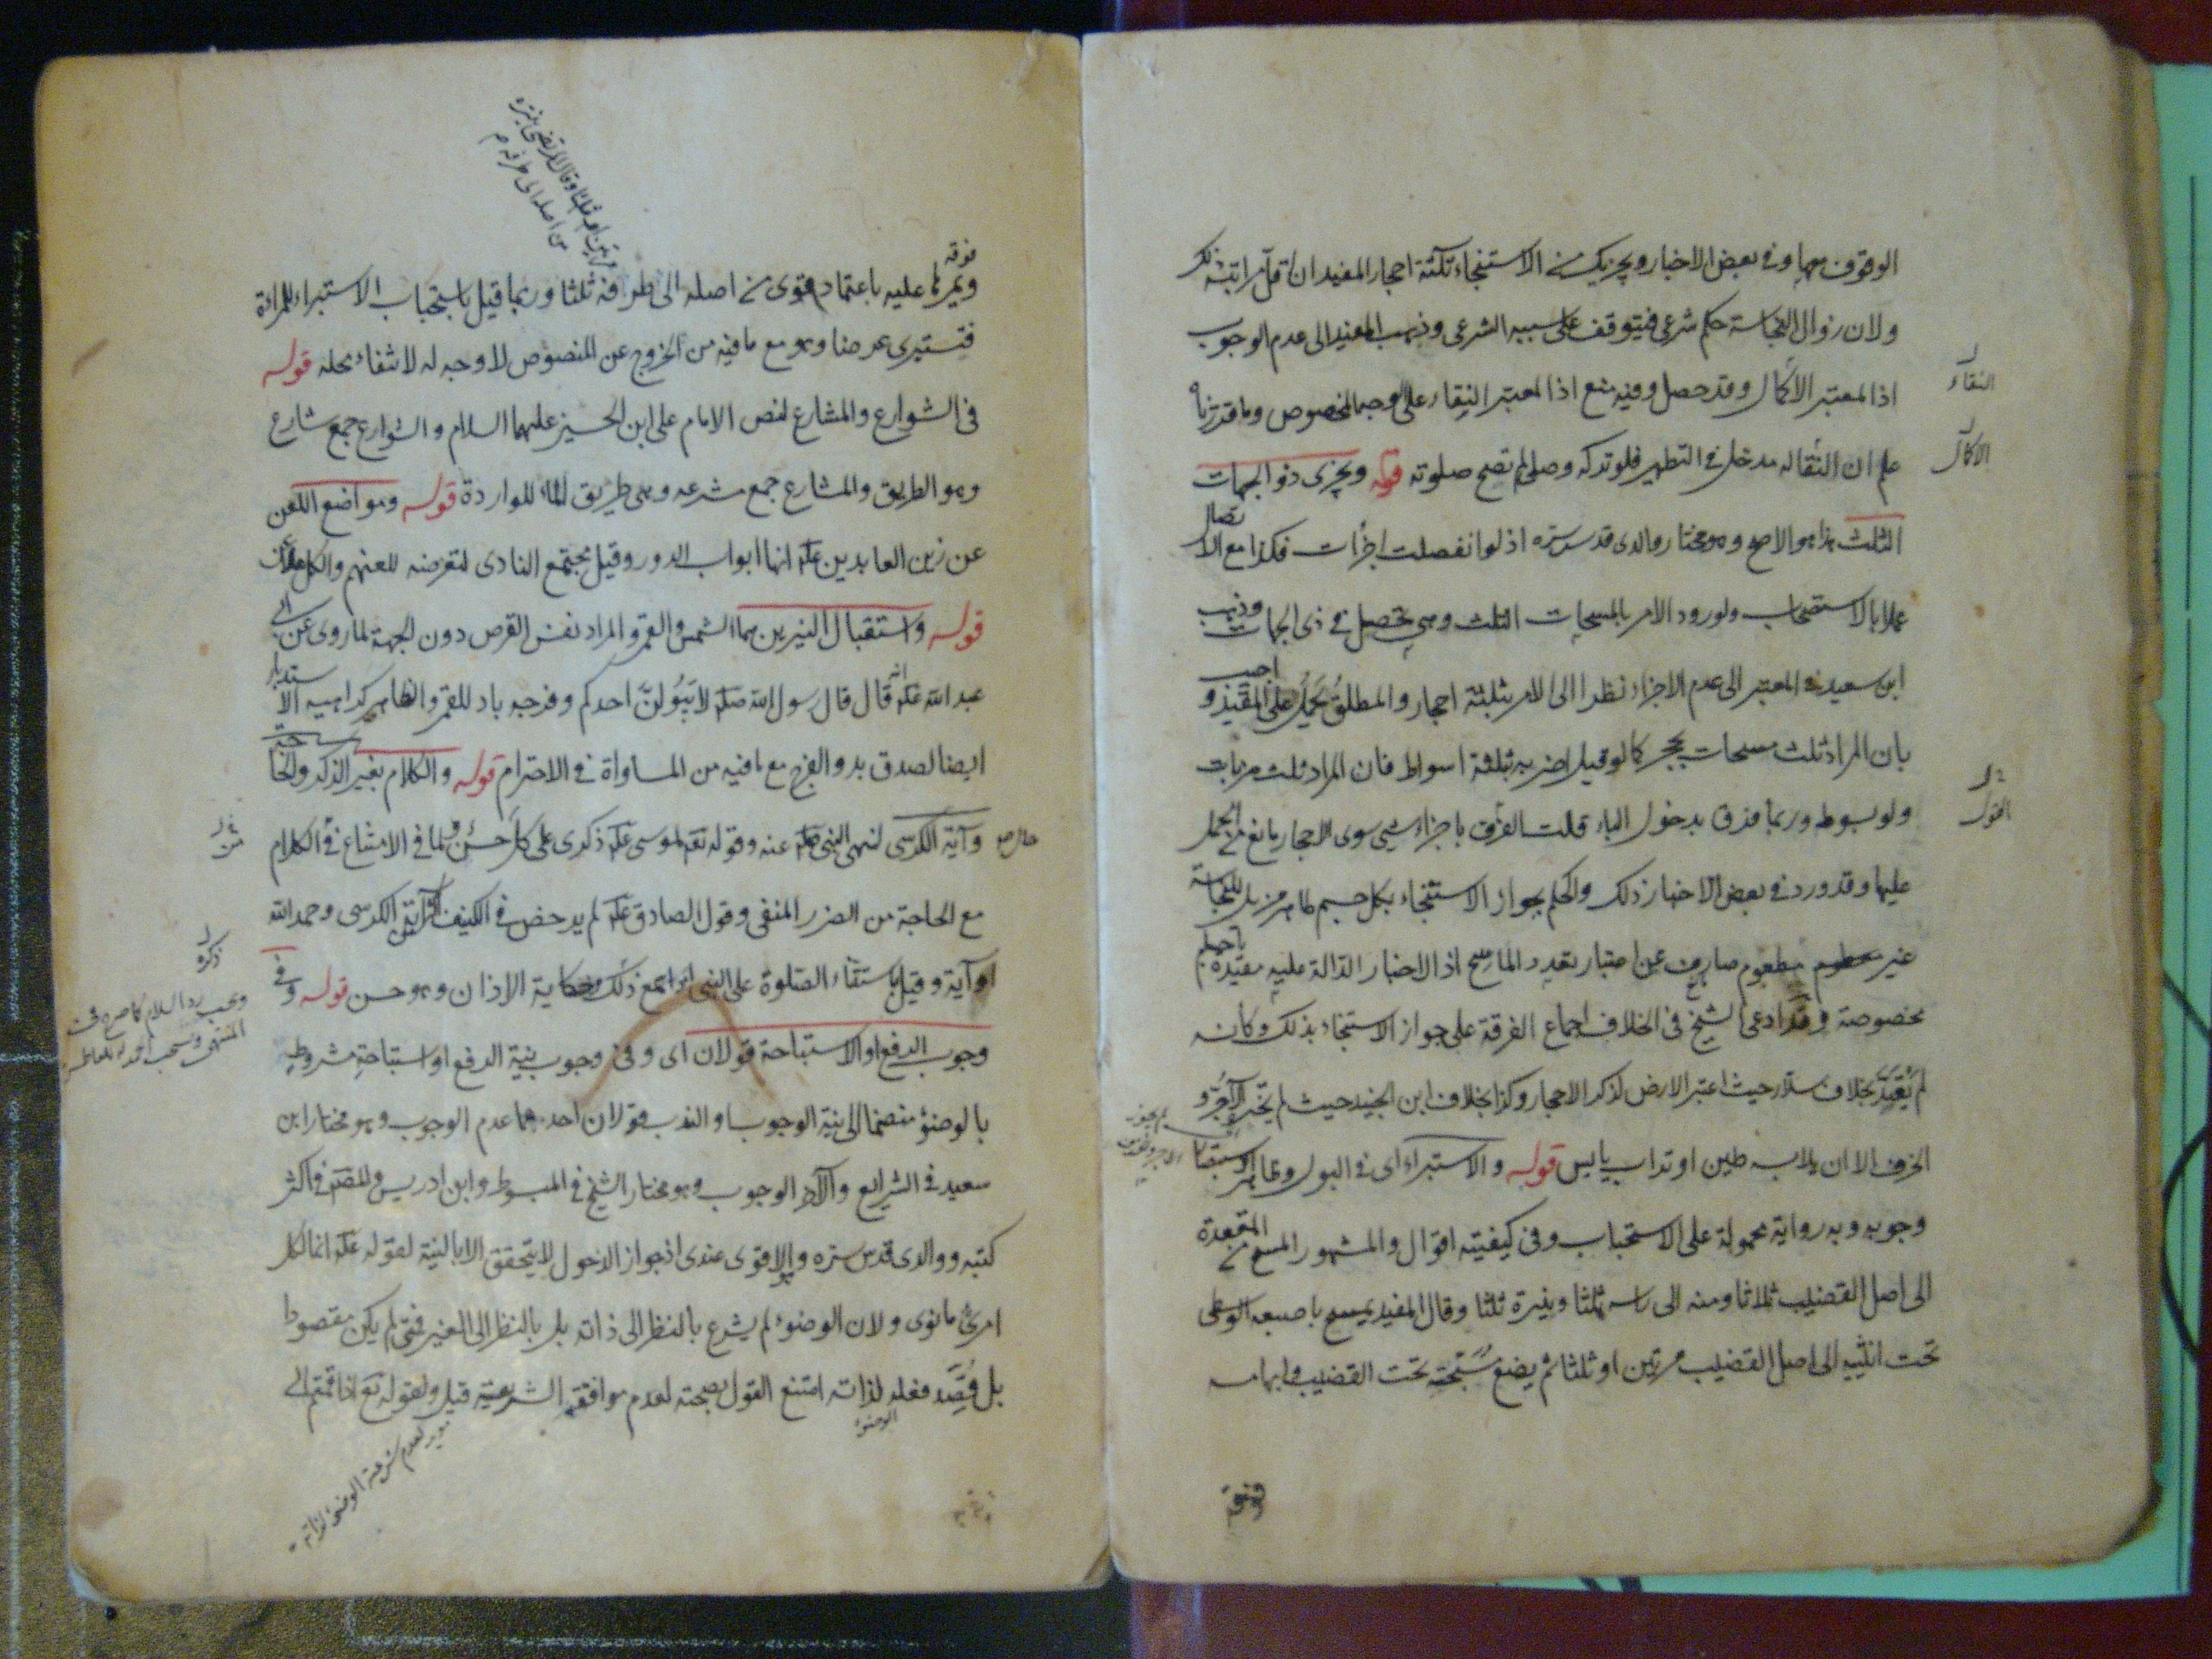 الوقوف معها وفي بعض الاخبار ويجزيك من الاستنجاء ثلثة احجار المفيد ان اقل مراتبه ذلك
ولان زوال النجاسة حكم شرعي فيتوقف على سببه الشرعي وذهب المفيد الى عدم الوجوب
اذ المعتبر الاكمال وقد حصل وفيه منع اذ المعتبر النقاء على الوجه المخصوص وما قدرناه
النقاء
علم ان النقا له مدخل في التطهير فلو تركه وصلى لم تصح صلوته قوله ويجزى ذو الجهات
الاكمال
الثلث هذا هو الاصح وهو مختار والدى قدس سره اذ لو انفصلت اجزأت فكذا مع الاتصال
عملا بالاستصحاب ولورود الامر بالمسحات الثلث وهي تحصل في ذى الجهات وذهب
ابن سعيد في المعتبر الى عدم الاجزاء نظرا الى الامر بثلثة احجار والمطلق يحمل على المقيد و اجيب
بان المراد ثلث مسحات بحجر كما لو قيل اضربه ثلثة اسواط فان المراد ثلث مرات
ولو بسوط وربما فرق بدخول الباء قلت الفرق باجزاء شي سوى الاحجار مانع من الحمل
القول
عليها وقد ورد في بعض الاخبار ذلك والحكم بجواز الاستنجاء بكل جسم طاهر مزيل للنجاسة
غير مطعوم صارف عن اعتبار تعدد الماسح اذ الاخبار الدالة عليه مقيدة باحجار
مخصوصة وقد ادعى الشيخ في الخلاف اجماع الفرقة على جواز الاستنجاء بذلك وكانه
لم يعتد بخلاف سلار حيث اعتبر الارض لذكر الاحجار وكذا بخلاف ابن الجنيد حيث لم يختر الآجر و
الخزف الا ان يلابسه طين او تراب يابس قوله والاستبراء اى في البول وظاهر الاستبصار
وجوبه وبه رواية محمولة على الاستحباب وفي كيفيته اقوال والمشهور المسح من المقعدة
الى اصل القضيب ثلاثا ومنه الى راسه ثلثا وينتره ثلثا وقال المفيد يمسح باصبعه الوسطى
تحت انثييه الى اصل القضيب مرتين او ثلثا ثم يضع مسبحته تحت القضيب وابهامه
فوقه
فوقه
ويمرهما عليه باعتماد قوى من اصله الى طرفه ثلثا وربما قيل باستحباب الاستبراء للمراة
فتستبرى عرضا وهو مع ما فيه من الخروج عن المنصوص لا وجه له لانتفاء محله قوله
في الشوارع والمشارع لنص الامام على ابن الحسين عليهما السلام والشوارع جمع شارع
وهو الطريق والمشارع جمع مشرعه وهي طريق الماء للواردة قوله ومواضع اللعن
عن زين العابدين علم انها ابواب الدور وقيل مجتمع النادى لتعرضه للعنهم والكل
قوله واستقبال النيرين هما الشمس والقمر والمراد نفس القرص دون الجهة لما روى عن ابي
عبد الله علم انه قال قال رسول الله صلم لا يبولن احدكم وفرجه باد للقمر والظاهر كراهية الاستدبار
ايضا لصدق بدو الفرج مع ما فيه من المساواة في الاحترام قوله والكلام بغير الذكر والحاجة
وآية الكرسى لنهى النبى صلم عنه وقوله تع لموسى علم ذكرى على كل حال حسن ولما في الامتناع من الكلام
مع الحاجة من الضرر المنفى وقول الصادق علم لم يرخص في الكنيف اكثر من آية الكرسى وحمد الله
او آية وقيل باستثناء الصلوة على النبى اذا سمع ذكره وحكاية الاذان وهو حسن قوله وفي
ذكره
وجوب الرفع او الاستباحة قولان اى وفي وجوب نية الرفع او استباحة مشروط
بالوضؤ منضما الى نية الوجوب او الندب قولان احدهما عدم الوجوب وهو مختار ابن
سعيد في الشرايع والآخر الوجوب وهو مختار الشيخ في المبسوط وابن ادريس والمصنف في اكثر
كتبه ووالدى قدس سره وهو الاقوى عندى اذ جواز الدخول لا يتحقق الا بالنية لقوله علم انما لكل
امرئ ما نوى ولان الوضوء لم يشرع بالنظر الى ذاته بل بالنظر الى الغير فمتى لم يكن مقصودا
بل قصد فعله لذاته امتنع القول بصحته لعدم موافقته الشرعية قيل ولقوله تع اذا قمتم الى
الوضوء
لعدم شرعية الوضوء لذاته